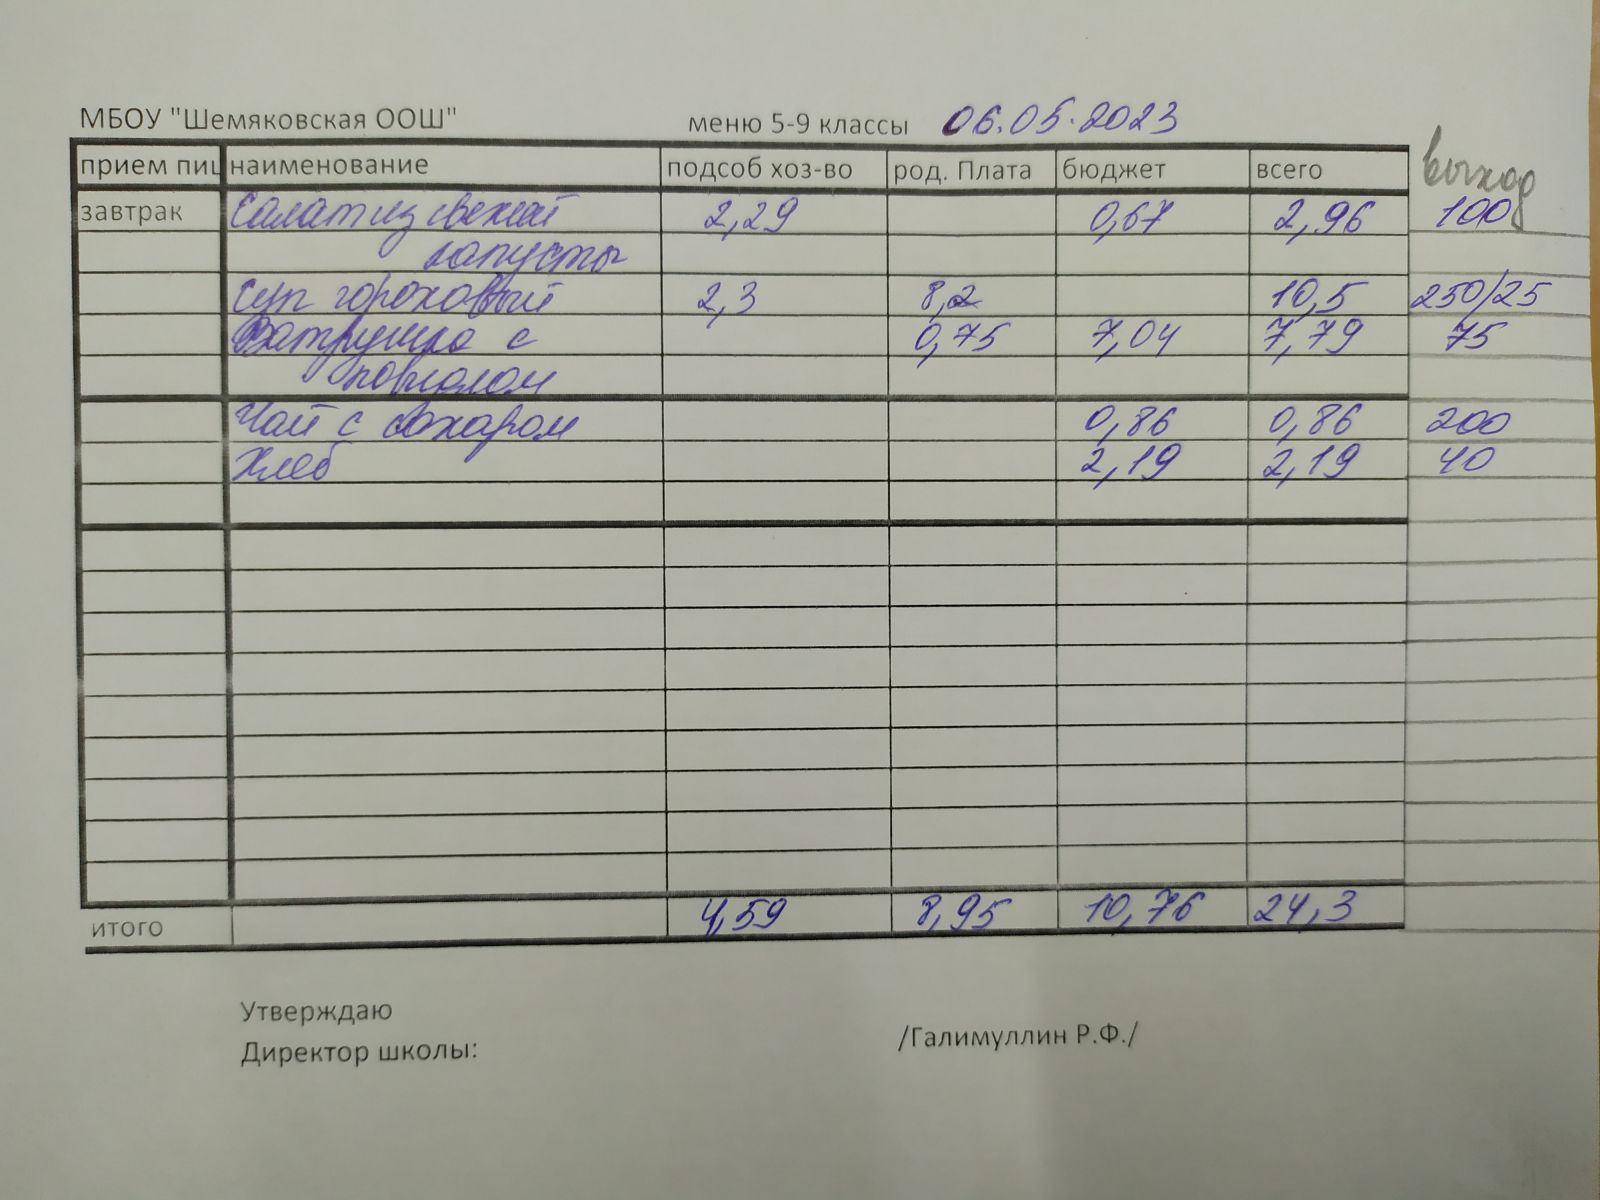 МБОУ "Шемяковская ООШ" меню 5-9 классы 06.05.2023
прием пищ наименование подсоб хоз-во род. Плата бюджет всего выход
завтрак Салат из свежей 2,29 0,67 2,96 100
капусты
Суп гороховый 2,3 8,2 10,5 250/25
Ватрушка с 0,75 7,04 7,79 75
повидлом
Чай с сахаром 0,86 0,86 200
Хлеб 2,19 2,19 40
итого 4,59 8,95 10,76 24,3
Утверждаю
Директор школы: /Галимуллин Р.Ф./